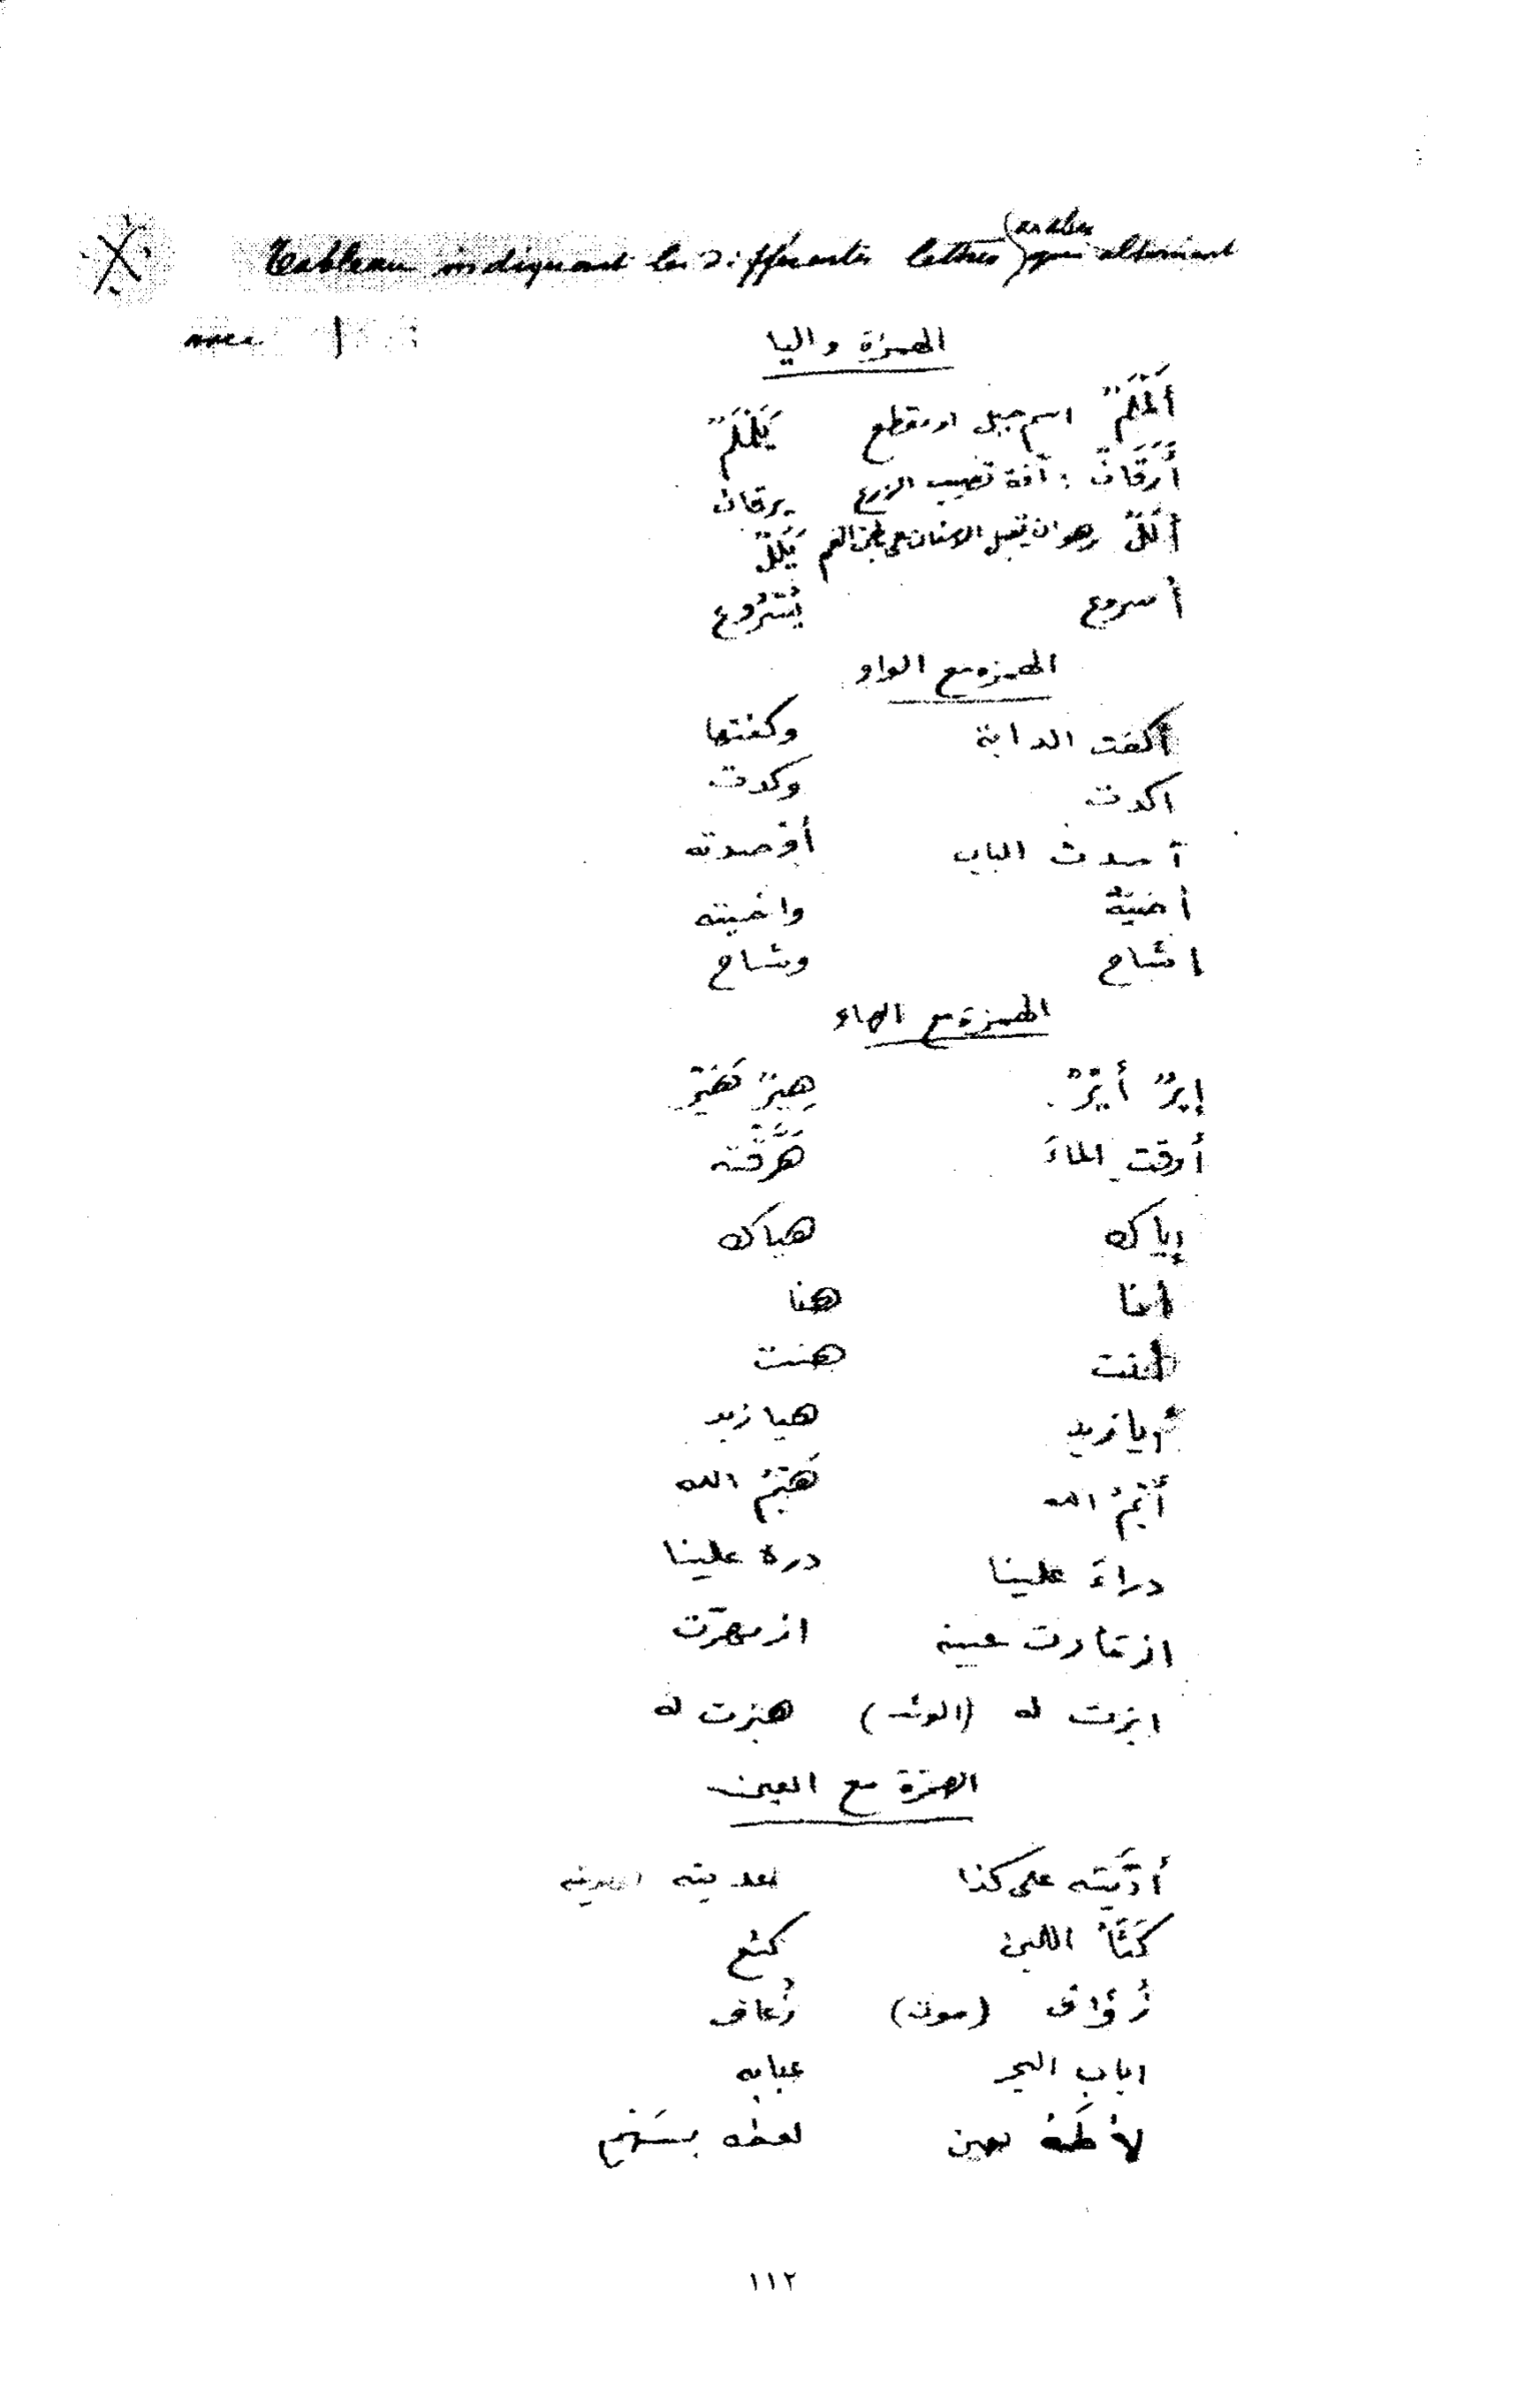 Tableau indiquant les différentes lettres (arabes) qui alternent
avec ا
الهمزة واليا
أَلَمْلَمٌ اسم جبل او مقطع يَلَمْلَمٌ
أَرَقَانٌ : آفة تصيب الزرع يرقان
أَلَلٌ وهو ان تقبل الاسنان على باطن الفم يَلَلٌ
أسروع يُسْرُوع
الهمزه مع الواو
أكفت الدابة وكفتها
اكدت وكدت
آصدت الباب أوْصدته
أخيّة واخيته
اشاح وشاح
الهمزة مع الهاء
إيرٌ أَيّرٌ هِيرٌ هَيّرٌ
أرقت الماءَ هَرَقْته
إياك هياك
أنا هنا
أنت هنت
أيا زيد هيا زيد
أَيْمُ الله هَيْمُ الله
دراءَ علينا دره علينا
ازمأرت عينه ازمهرّت
ابزت له (الوثب) هبزت له
الهمزة مع العين
أدّيته على كذا اعديته
كَثَأَ اللبن كثع
زُؤاف (موت) زُعاف
اباب البحر عبابه
لأَطَهُ بعين لعطه بسَهْم
١١٢